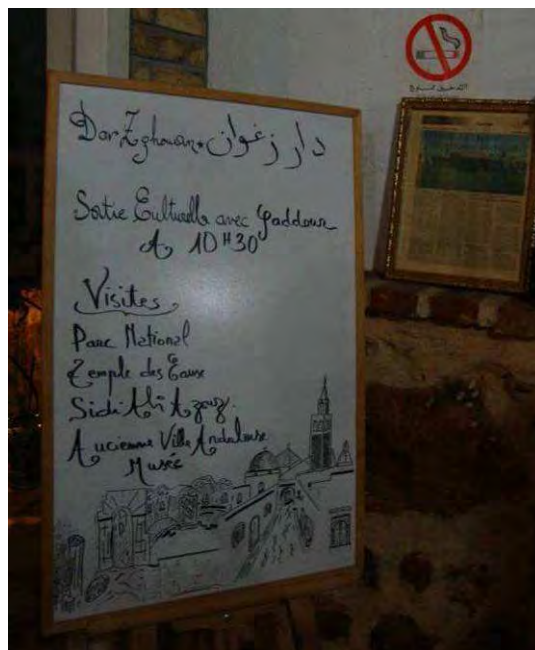 التدخين ممنوع
Dar Zghouan دار زغوان
Sortie Culturelle avec Gaddour
A 10H30
Visites
Parc National
Temple des Eaux
Sidi Ali Azouz
Ancienne Ville Andalouse
Musée